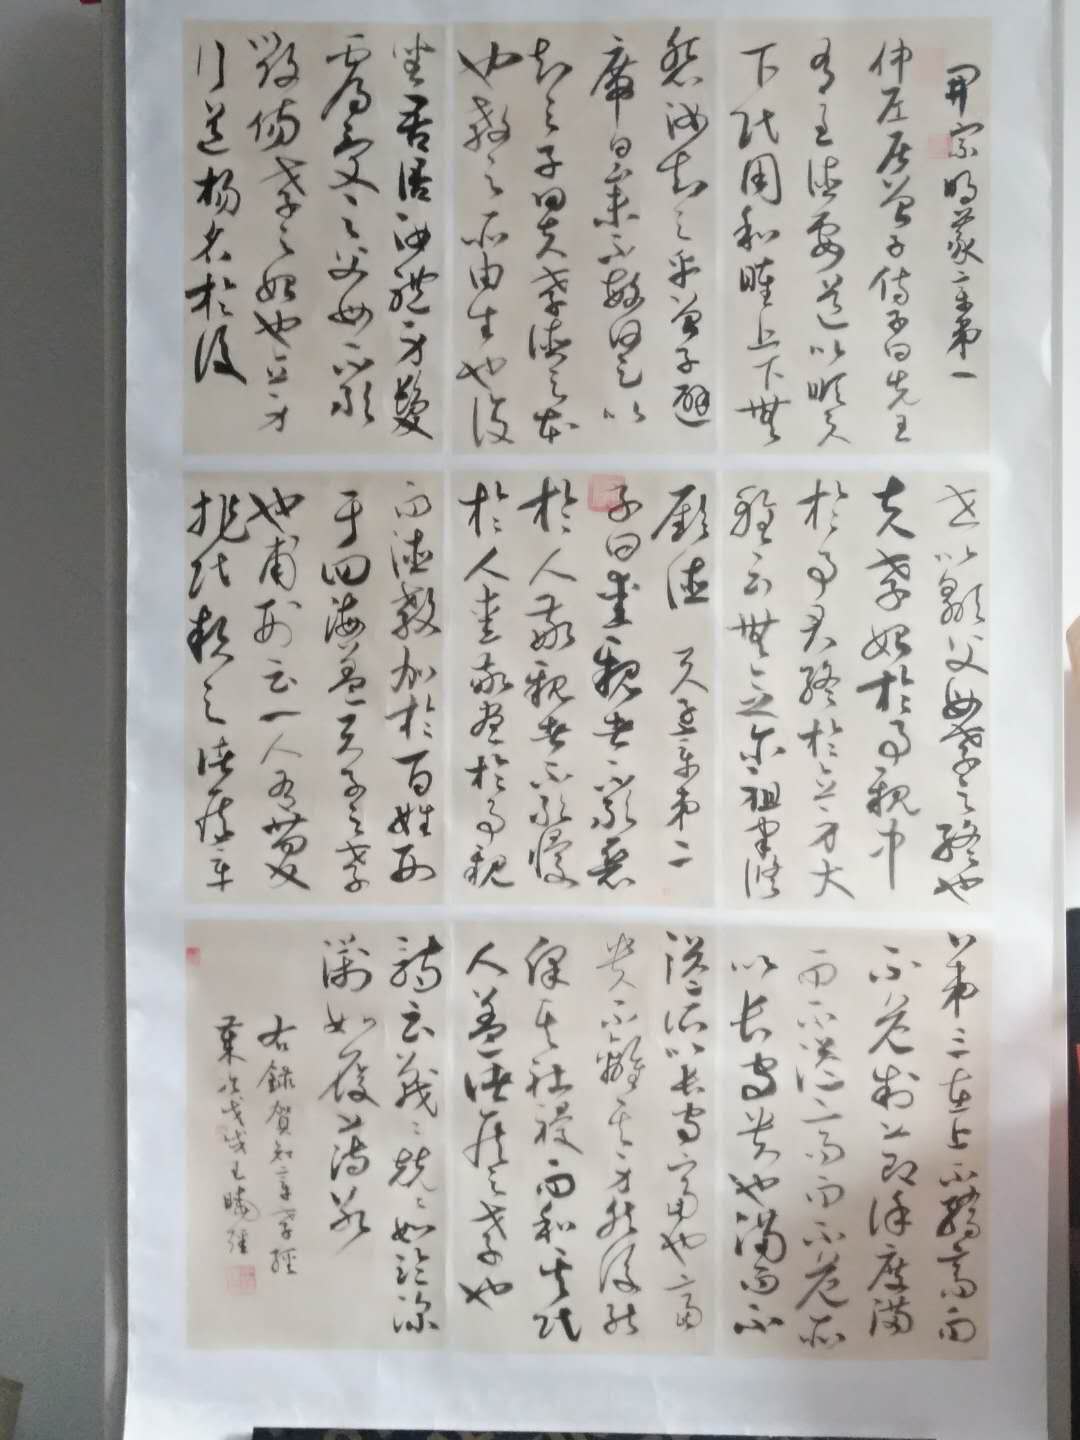 開宗明義章第一
仲尼居曾子侍子曰先王
有至德要道以順天
下民用和睦上下無
怨汝知之乎曾子避
席曰參不敏何足以
知之子曰夫孝德之本
也教之所由生也復
坐吾語汝體身髮
膚受之父母不敢
毀傷孝之始也立身
行道揚名於後
世以顯父母孝之終也
夫孝始於事親中
於事君終於立身大
雅云無念爾祖聿脩
厥德 天子章第二
子曰愛親者不敢惡
於人敬親者不敢慢
於人愛敬盡於事親
而德教加於百姓刑
于四海蓋天子之孝
也甫刑云一人有慶
兆民賴之 諸侯章
第三在上不驕高而
不危制節謹度滿
而不溢高而不危所
以長守貴也滿而不
溢所以長守富也富
貴不離其身然後能
保其社稷而和其民
人蓋諸侯之孝也
詩云戰戰兢兢如臨深
淵如履薄冰
右錄賀知章孝經
戊戌